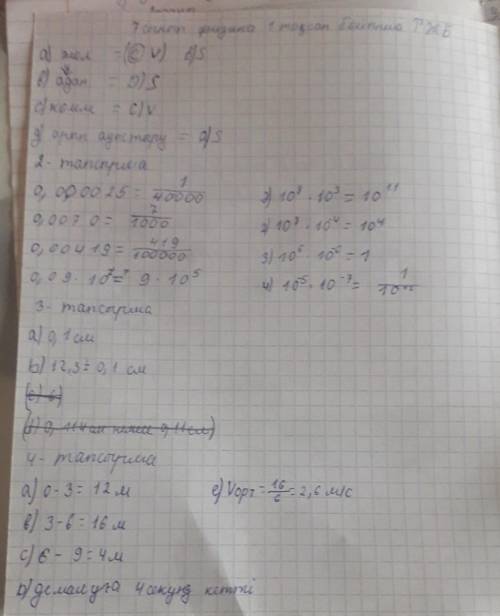 7 сынып физика 1 тоқсан бойынша ТЖБ
a) жол = (C) V) B) S
в) адам = D) S
c) көлем = C) V
d) орын ауыстыру = D) S
2 - тапсырма
0,000025 = 1/40000
0,0070 = 7/1000
0,00419 = 419/100000
0,09 · 10⁷ = 9 · 10⁵
1) 10⁸ · 10³ = 10¹¹
2) 10⁸ · 10⁻⁴ = 10⁴
3) 10⁶ · 10⁻⁶ = 1
4) 10⁻⁵ · 10⁻⁷ =
3 - тапсырма
a) 0,1 см
b) 12,3 ± 0,1 см
(c) 6)
4 - тапсырма
a) 0 - 3 = 12 м
в) 3 - 6 = 16 м
c) 6 - 9 = 4 м
D) демалуға 4 секунд кетті
e) Vорт = 16/6 = 2,6 м/с